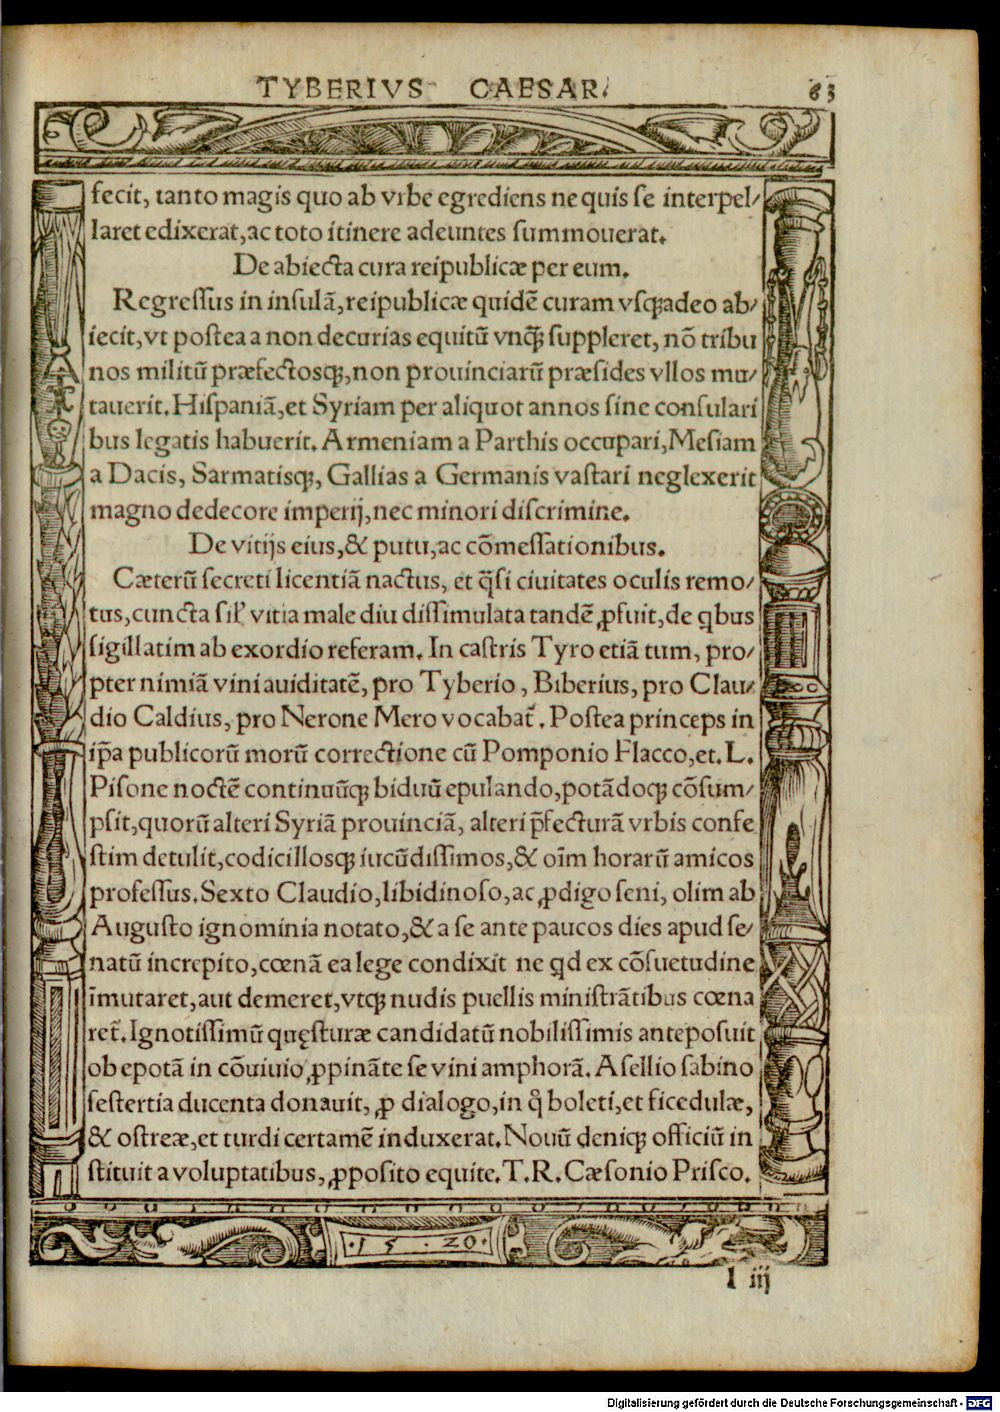 TYBERIVS CAESAR. 63
fecit, tanto magis quo ab vrbe egrediens ne quis se interpel/
laret edixerat, ac toto itinere adeuntes summouerat.
De abiecta cura reipublicæ per eum.
Regressus in insulā, reipublicæ quidē curam vsqꝫadeo ab/
iecit, vt postea a non decurias equitū vnqꝫ̄ suppleret, nō tribu
nos militū præfectosqꝫ, non prouinciarū præsides vllos mu/
tauerit. Hispaniā, et Syriam per aliquot annos sine consulari
bus legatis habuerit. Armeniam a Parthis occupari, Mesiam
a Dacis, Sarmatisqꝫ, Gallias a Germanis vastari neglexerit
magno dedecore imperij, nec minori discrimine.
De vitijs eius, & putu, ac cōmessationibus.
Cæterū secreti licentiā nactus, et q̄si ciuitates oculis remo/
tus, cuncta sil' vitia male diu dissimulata tandē ꝓfuit, de qbus
sigillatim ab exordio referam. In castris Tyro etiā tum, pro/
pter nimiā vini auiditatē, pro Tyberio, Biberius, pro Clau/
dio Caldius, pro Nerone Mero vocabat̄. Postea princeps in
ip̄a publicorū morū correctione cū Pomponio Flacco, et. L.
Pisone noctē continuūqꝫ biduū epulando, potādoqꝫ cōsum/
psit, quorū alteri Syriā prouinciā, alteri p̄fecturā vrbis confe
stim detulit, codicillosqꝫ iucūdissimos, & oīm horarū amicos
professus. Sexto Claudio, libidinoso, ac ꝓdigo seni, olim ab
Augusto ignominia notato, & a se ante paucos dies apud se/
natū increpito, cœnā ea lege condixit ne qd ex cōsuetudine
īmutaret, aut demeret, vtqꝫ nudis puellis ministrātibus cœna
ret̄. Ignotissimū quęsturæ candidatū nobilissimis anteposuit
ob epotā in cōuiuio, ꝓpināte se vini amphorā. Asellio sabino
sestertia ducenta donauit, ꝓ dialogo, in q̄ boleti, et ficedulæ,
& ostreæ, et turdi certamē induxerat. Nouū deniqꝫ officiū in
stituit a voluptatibus, ꝓposito equite. T. R. Cæsonio Prisco.
.15.20.
l iij
Digitalisierung gefördert durch die Deutsche Forschungsgemeinschaft - DFG